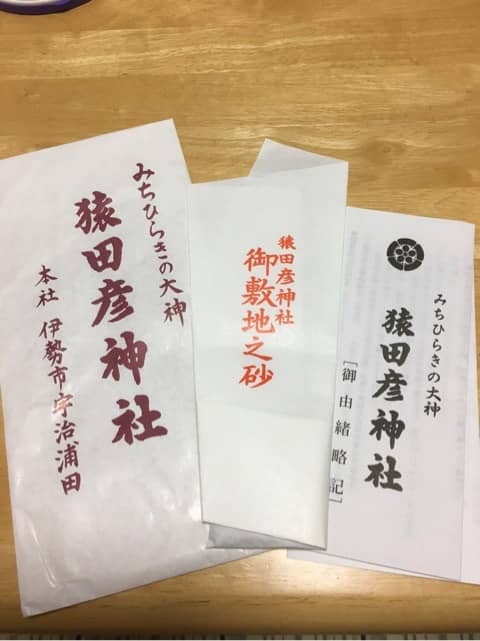 みちひらきの大神
猿田彦神社
本社 伊勢市宇治浦田
猿田彦神社
御敷地之砂
みちひらきの大神
猿田彦神社
［御由緒略記］